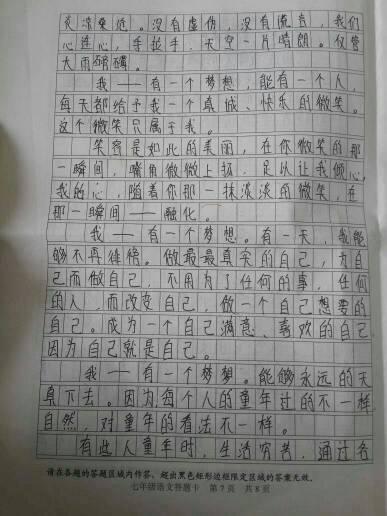 灵滚乘他。没有虚伪，没有流言，我们
心连心，手拉手，天空一片晴朗。仅管
大雨磅礴。
我——有一个梦想，能有一个人，
每天都给予我一个真诚、快乐的微笑。
这个微笑只属于我。
笑容是如此的美丽，在你微笑的那
一瞬间，嘴角微微上扬，足以让我倾心，
我的心，随着你那一抹淡淡的微笑，在
那一瞬间——融化。
我——有一个梦想。有一天，我能
够不再徘徊。做最最真实的自己，为自
己而做自己，不用为了任何的事，任何
的人，而改变自己，做一个自己想要的
自己。成为一个自己满意、喜欢的自己
因为自己就是自己。
我——有一个梦想。能够永远的天
真下去。因为每个人的童年过的不一样
自然，对童年的看法不一样。
有些人童年时，生活穷苦，通过各
请在各题的答题区域内作答，超出黑色矩形边框限定区域的答案无效。
七年级语文答题卡 第7页 共8页